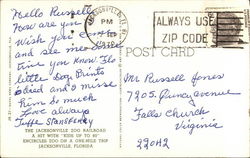 Hello Russell
How are you
Wish you come
and see me some
time you know Flo
little dog Prints
died and I misse
him so much
Love always
Taffe Stansberry
THE JACKSONVILLE ZOO RAILROAD
A HIT WITH "KIDS UP TO 80"
ENCIRCLES ZOO ON A ONE-MILE TRIP
JACKSONVILLE, FLORIDA
PM
ALWAYS USE
ZIP CODE
POST CARD
Mr Russell Jones
7205 Quincy avenue
Falls Church
Virginia
22042